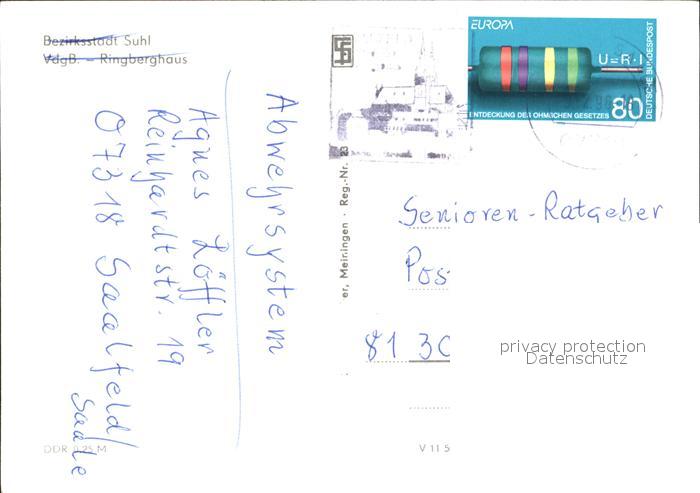 Bezirksstadt Suhl
VdgB. – Ringberghaus
Abwehrsystem
Agnes Löffler
Reinhardtstr. 19
07318 Saalfeld/
Saale
DDR 0,25 M
er, Meiningen · Reg.-Nr. 23
V 11 5
EUROPA
U=R·I
DEUTSCHE BUNDESPOST
80
ENTDECKUNG DES OHMSCHEN GESETZES
Senioren-Ratgeber
Pos
81 30
privacy protection
Datenschutz